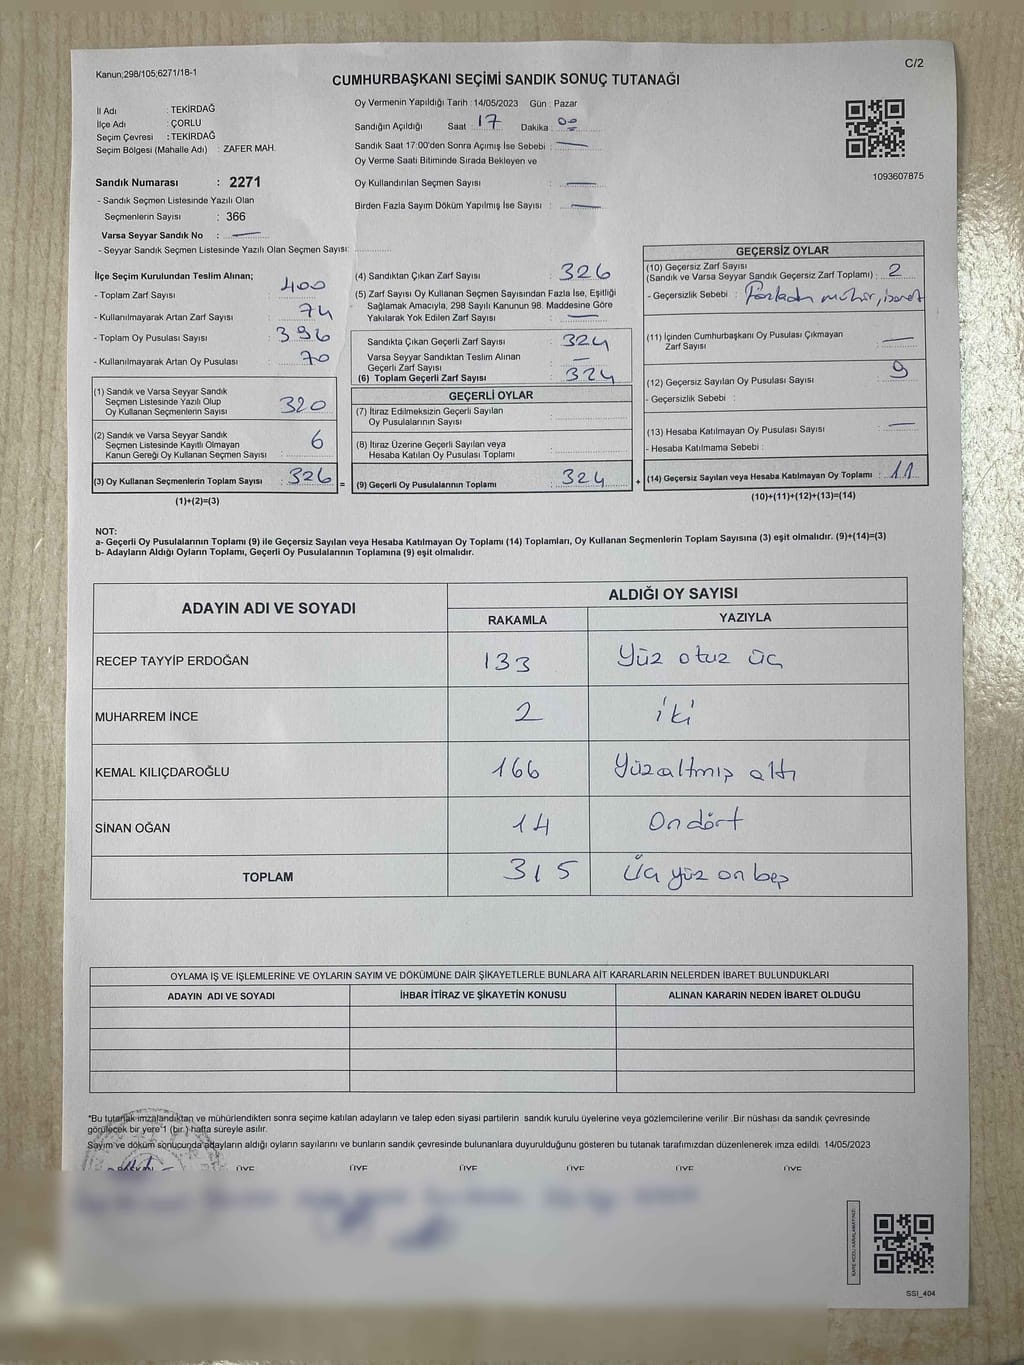 Kanun;298/105;6271/18-1
C/2
CUMHURBAŞKANI SEÇİMİ SANDIK SONUÇ TUTANAĞI
İl Adı : TEKİRDAĞ
İlçe Adı : ÇORLU
Seçim Çevresi : TEKİRDAĞ
Seçim Bölgesi (Mahalle Adı) : ZAFER MAH.
Sandık Numarası : 2271
- Sandık Seçmen Listesinde Yazılı Olan
Seçmenlerin Sayısı : 366
Varsa Seyyar Sandık No : —
- Seyyar Sandık Seçmen Listesinde Yazılı Olan Seçmen Sayısı:
Oy Vermenin Yapıldığı Tarih : 14/05/2023 Gün : Pazar
Sandığın Açıldığı Saat : 17 Dakika : 00
Sandık Saat 17:00'den Sonra Açımış İse Sebebi : —
Oy Verme Saati Bitiminde Sırada Bekleyen ve
Oy Kullandırılan Seçmen Sayısı : —
Birden Fazla Sayım Döküm Yapılmış İse Sayısı : —
1093607875
İlçe Seçim Kurulundan Teslim Alınan;
- Toplam Zarf Sayısı : 400
- Kullanılmayarak Artan Zarf Sayısı : 74
- Toplam Oy Pusulası Sayısı : 396
- Kullanılmayarak Artan Oy Pusulası : 70
(1) Sandık ve Varsa Seyyar Sandık
Seçmen Listesinde Yazılı Olup
Oy Kullanan Seçmenlerin Sayısı : 320
(2) Sandık ve Varsa Seyyar Sandık
Seçmen Listesinde Kayıtlı Olmayan
Kanun Gereği Oy Kullanan Seçmen Sayısı : 6
(3) Oy Kullanan Seçmenlerin Toplam Sayısı : 326
(1)+(2)=(3)
=
(4) Sandıktan Çıkan Zarf Sayısı : 326
(5) Zarf Sayısı Oy Kullanan Seçmen Sayısından Fazla İse, Eşitliği
Sağlamak Amacıyla, 298 Sayılı Kanunun 98. Maddesine Göre
Yakılarak Yok Edilen Zarf Sayısı : —
Sandıkta Çıkan Geçerli Zarf Sayısı : 324
Varsa Seyyar Sandıktan Teslim Alınan
Geçerli Zarf Sayısı : —
(6) Toplam Geçerli Zarf Sayısı : 324
GEÇERLİ OYLAR
(7) İtiraz Edilmeksizin Geçerli Sayılan
Oy Pusulalarının Sayısı :
(8) İtiraz Üzerine Geçerli Sayılan veya
Hesaba Katılan Oy Pusulası Toplamı :
(9) Geçerli Oy Pusulalarının Toplamı : 324
+
GEÇERSİZ OYLAR
(10) Geçersiz Zarf Sayısı
(Sandık ve Varsa Seyyar Sandık Geçersiz Zarf Toplamı) : 2
- Geçersizlik Sebebi : Fazladan mühür, işaret
(11) İçinden Cumhurbaşkanı Oy Pusulası Çıkmayan
Zarf Sayısı : —
(12) Geçersiz Sayılan Oy Pusulası Sayısı : 9
- Geçersizlik Sebebi :
(13) Hesaba Katılmayan Oy Pusulası Sayısı : —
- Hesaba Katılmama Sebebi :
(14) Geçersiz Sayılan veya Hesaba Katılmayan Oy Toplamı : 11
(10)+(11)+(12)+(13)=(14)
NOT:
a- Geçerli Oy Pusulalarının Toplamı (9) ile Geçersiz Sayılan veya Hesaba Katılmayan Oy Toplamı (14) Toplamları, Oy Kullanan Seçmenlerin Toplam Sayısına (3) eşit olmalıdır. (9)+(14)=(3)
b- Adayların Aldığı Oyların Toplamı, Geçerli Oy Pusulalarının Toplamına (9) eşit olmalıdır.
ADAYIN ADI VE SOYADI
ALDIĞI OY SAYISI
RAKAMLA
YAZIYLA
RECEP TAYYİP ERDOĞAN 133 Yüz otuz üç
MUHARREM İNCE 2 iki
KEMAL KILIÇDAROĞLU 166 Yüzaltmış altı
SİNAN OĞAN 14 On dört
TOPLAM 315 Üç yüz on beş
OYLAMA İŞ VE İŞLEMLERİNE VE OYLARIN SAYIM VE DÖKÜMÜNE DAİR ŞİKAYETLERLE BUNLARA AİT KARARLARIN NELERDEN İBARET BULUNDUKLARI
ADAYIN ADI VE SOYADI
İHBAR İTİRAZ VE ŞİKAYETİN KONUSU
ALINAN KARARIN NEDEN İBARET OLDUĞU
*Bu tutanak imzalandıktan ve mühürlendikten sonra seçime katılan adayların ve talep eden siyasi partilerin sandık kurulu üyelerine veya gözlemcilerine verilir. Bir nüshası da sandık çevresinde
görülecek bir yere 1 (bir) hafta süreyle asılır.
Sayım ve döküm sonucunda adayların aldığı oyların sayılarını ve bunların sandık çevresinde bulunanlara duyurulduğunu gösteren bu tutanak tarafımızdan düzenlenerek imza edildi. 14/05/2023
BAŞKAN ÜYE ÜYE ÜYE ÜYE ÜYE ÜYE
SSI_404